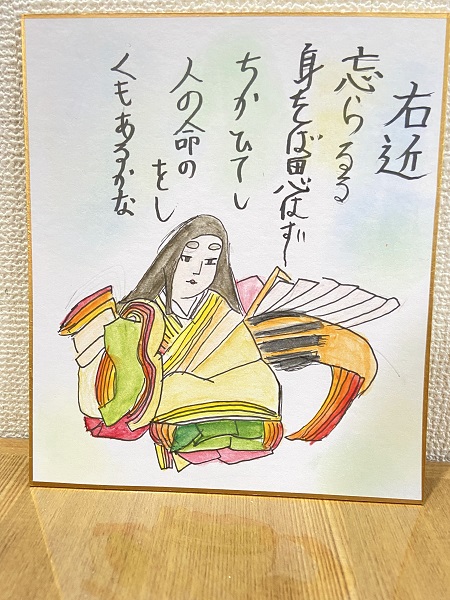 右近
忘らるる
身をば思はず
ちかひてし
人の命の
をし
くもあるかな